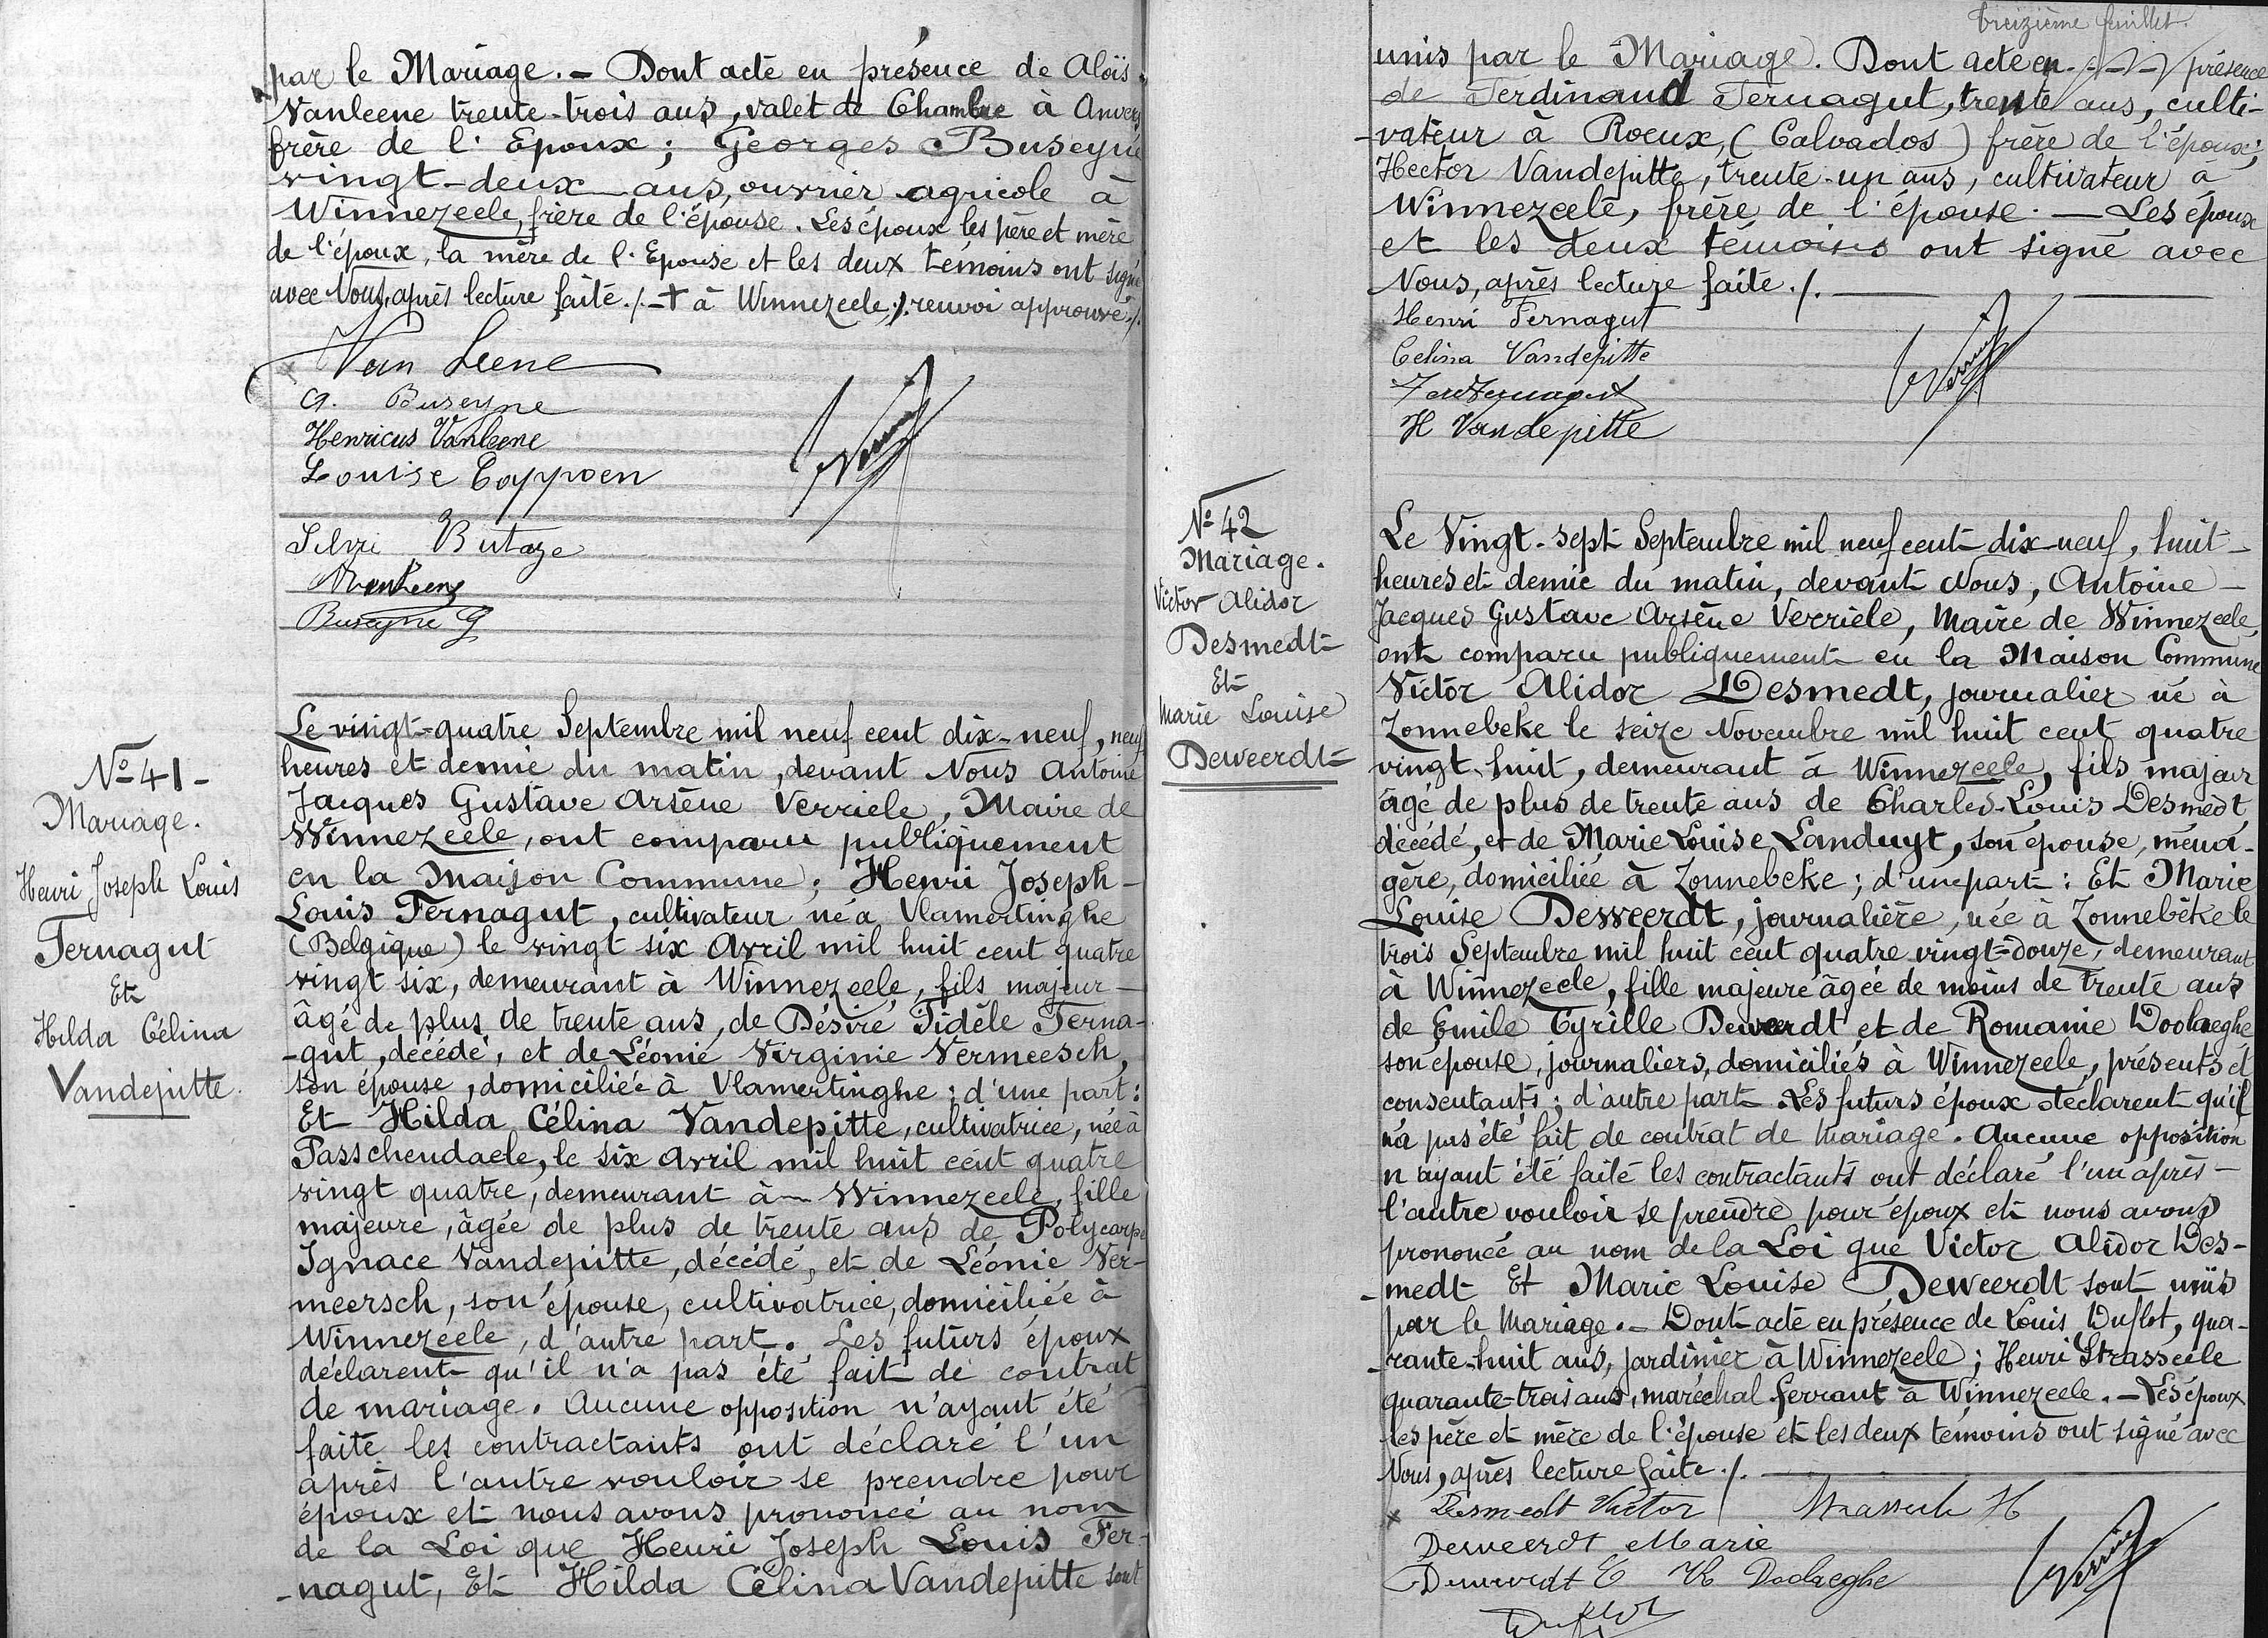 par le Mariage. - Dont acte en présence de Aloïs
Vanleene trente-trois ans, valet de Chambre à Anvers
frère de l'Epoux ; Georges Buseyne
vingt-deux ans, ouvrier agricole à
Winnezeele, frère de l'épouse. Les époux les père et mère
de l'époux, la mère de l'Epouse et les deux témoins ont signé
avec Nous, après lecture faite./. - + à Winnezeele ;/. renvoi approuvé./.
Van Leene
G. Buseyne
Henricus Vanleene
Louise Coppoen
Silvi Butaye
A Vanleene
Buseyne G
N° 41 -
Mariage.
Henri Joseph Louis
Fernagut
Et
Hilda Célina
Vandepitte.
Le vingt-quatre Septembre mil neuf cent dix-neuf, neuf
heures et demie du matin, devant Nous Antoine
Jacques Gustave Arsène Verriele, Maire de
Winnezeele, ont comparu publiquement
en la Maison Commune ; Henri Joseph-
Louis Fernagut, cultivateur né à Vlamertinghe
(Belgique) le vingt six Avril mil huit cent quatre
vingt six, demeurant à Winnezeele, fils majeur -
âgé de plus de trente ans, de Désiré Fidèle Ferna-
-gut, décédé, et de Léonie Virginie Vermeesch,
son épouse, domiciliée à Vlamertinghe ; d'une part :
Et Hilda Célina Vandepitte, cultivatrice, née à
Passchendaele, le six Avril mil huit cent quatre
vingt quatre, demeurant à Winnezeele, fille
majeure, âgée de plus de trente ans de Polycarpe
Ignace Vandepitte, décédé, et de Léonie Ver-
meersch, son épouse, cultivatrice, domiciliée à
Winnezeele, d'autre part. Les futurs époux
déclarent qu'il n'a pas été fait de contrat
de mariage. Aucune opposition n'ayant été
faite les contractants ont déclaré l'un
après l'autre vouloir se prendre pour
époux et nous avons prononcé au nom
de la Loi que Henri Joseph Louis Fer-
-nagut, Et Hilda Célina Vandepitte sont
treizième feuillet.
unis par le Mariage. Dont acte en présence
de Ferdinand Fernagut, trente ans, culti-
-vateur à Rocux, (Calvados) frère de l'époux ;
Hector Vandepitte, trente-un ans, cultivateur à
Winnezeele, frère de l'épouse. - Les époux
et les deux témoins ont signé avec
Nous, après lecture faite./.
Henri Fernagut
Celina Vandepitte
Ferd Fernagut
H Vandepitte
N° 42
Mariage.
Victor Alidor
Desmedt
Et
Marie Louise
Deweerdt
Le Vingt-sept Septembre mil neuf cent dix-neuf, huit-
heures et demie du matin, devant Nous, Antoine -
Jacques Gustave Arsène Verriele, Maire de Winnezeele,
ont comparu publiquement en la Maison Commune
Victor Alidor Desmedt, journalier né à
Zonnebeke le seize Novembre mil huit cent quatre
vingt-huit, demeurant à Winnezeele, fils majeur
âgé de plus de trente ans de Charles-Louis Desmedt,
décédé, et de Marie Louise Landuyt, son épouse, ména-
gère, domiciliée à Zonnebeke ; d'une part : Et Marie
Louise Deweerdt, journalière, née à Zonnebeke le
trois Septembre mil huit cent quatre vingt-douze, demeurant
à Winnezeele, fille majeure âgée de moins de trente ans
de Emile Cyrille Deweerdt et de Romanie Doolaeghe
son épouse, journaliers, domiciliés à Winnezeele, présents et
consentants ; d'autre part. Les futurs époux déclarent qu'il
n'a pas été fait de contrat de mariage. Aucune opposition
n'ayant été faite les contractants ont déclaré l'un après -
l'autre vouloir se prendre pour époux et nous avons
prononcé au nom de la Loi que Victor Alidor Des-
-medt Et Marie Louise Deweerdt sont unis
par le Mariage. - Dont acte en présence de Louis Duflot, qua-
-rante-huit ans, jardinier à Winnezeele ; Henri Strasseele
quarante-trois ans, maréchal ferrant à Winnezeele. - Les époux
les père et mère de l'épouse et les deux témoins ont signé avec
Nous, après lecture faite./.
Desmedt Victor Strasseele H
Deweerdt Marie
Deweerdt E R Doolaeghe
Duflot